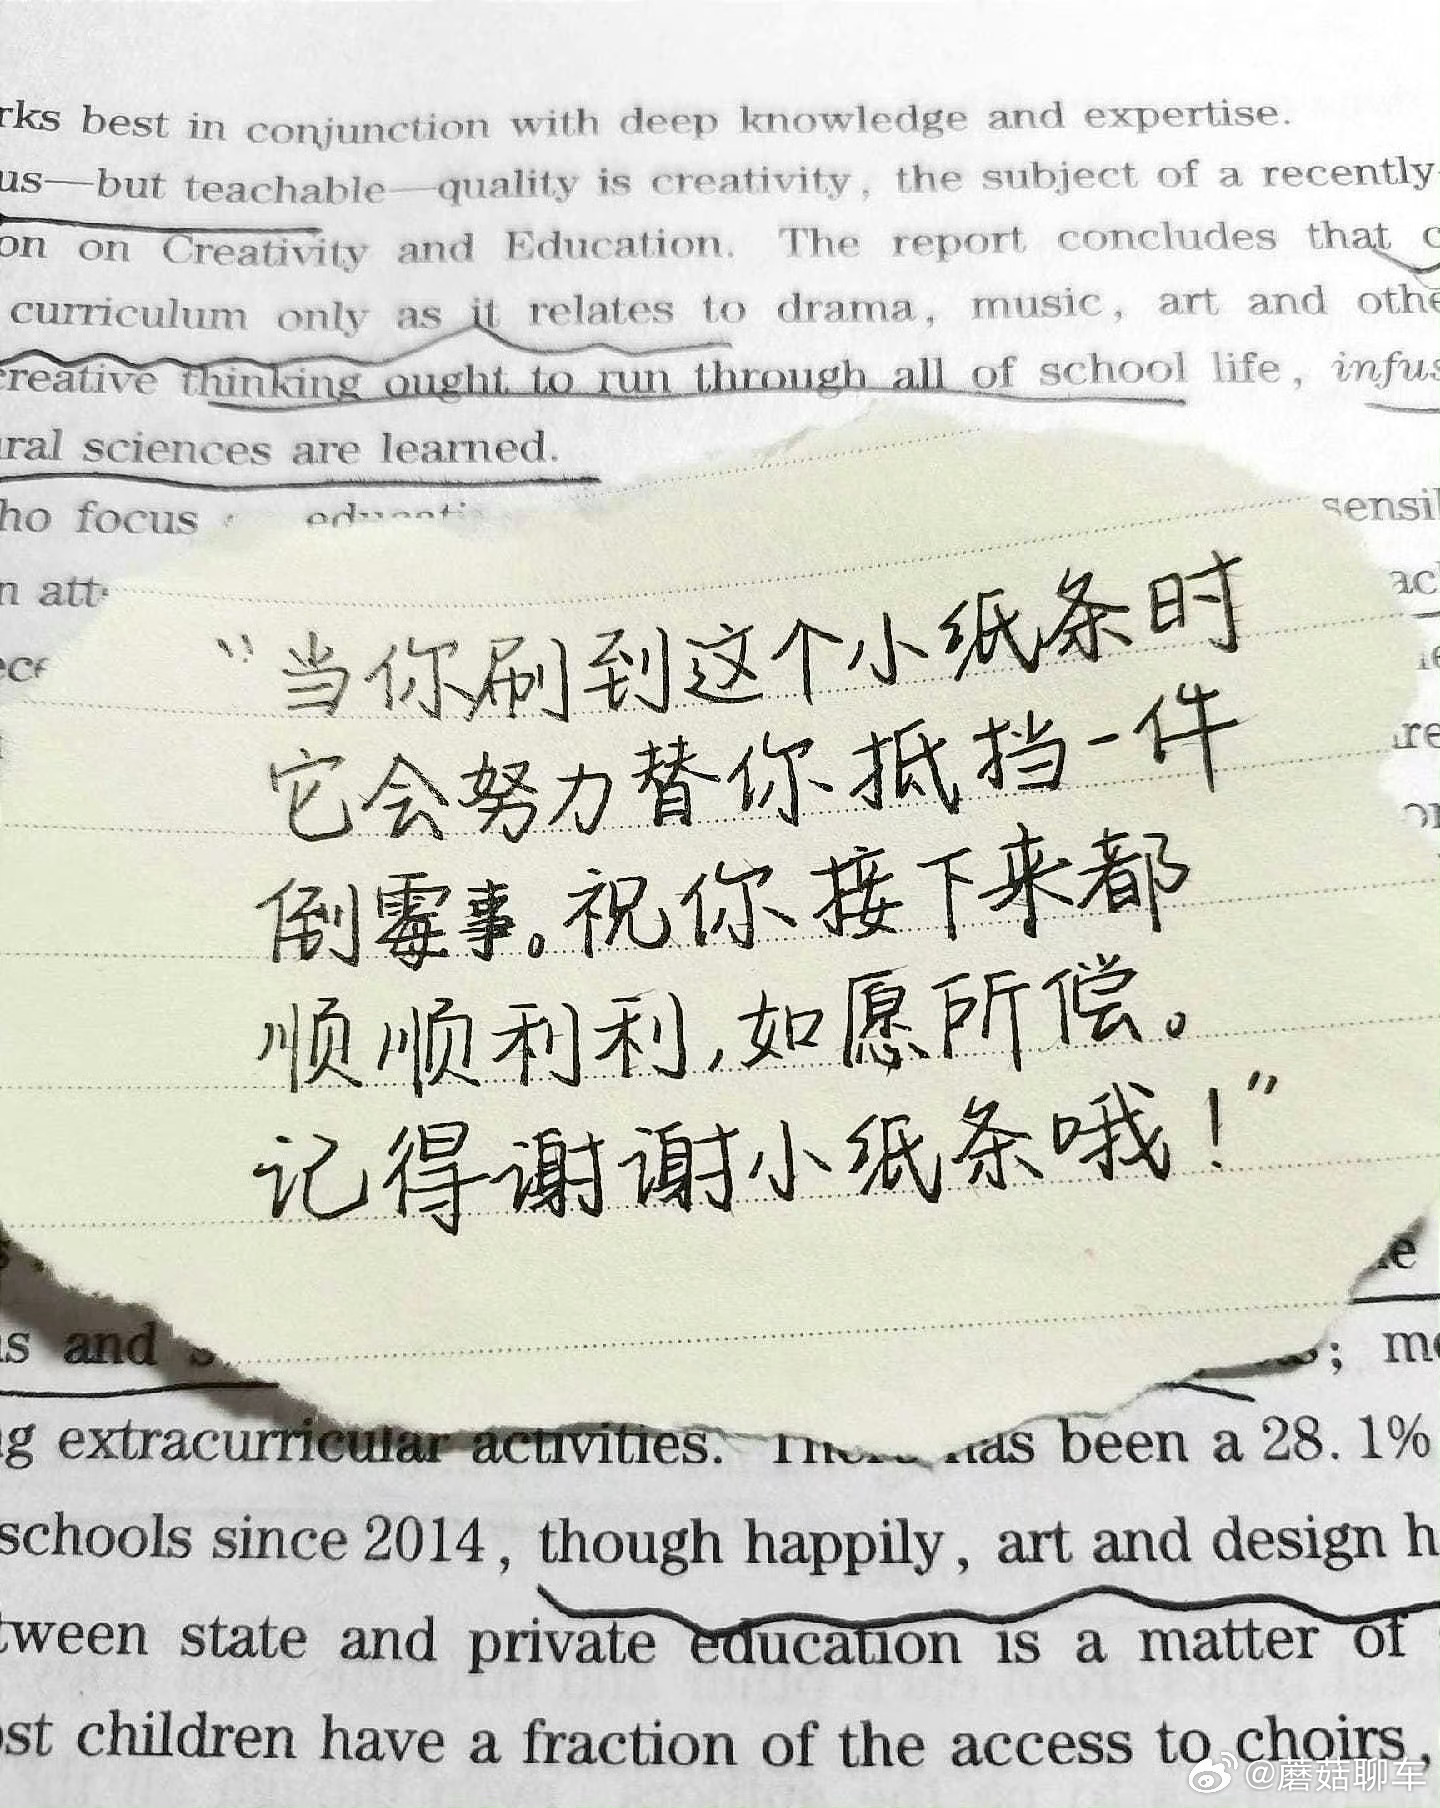 rks best in conjunction with deep knowledge and expertise.
us—but teachable—quality is creativity, the subject of a recently-
on on Creativity and Education. The report concludes that c
curriculum only as it relates to drama, music, art and othe
creative thinking ought to run through all of school life, infus
ral sciences are learned.
ho focus
sensi
n att
“当你刷到这个小纸条时
它会努力替你抵挡一件
倒霉事。祝你接下来都
顺顺利利，如愿所偿。
记得谢谢小纸条哦！”
s and s
; m
g extracurricular activities. There has been a 28.1%
schools since 2014, though happily, art and design h
tween state and private education is a matter of
ost children have a fraction of the access to choirs,
@蘑菇聊车